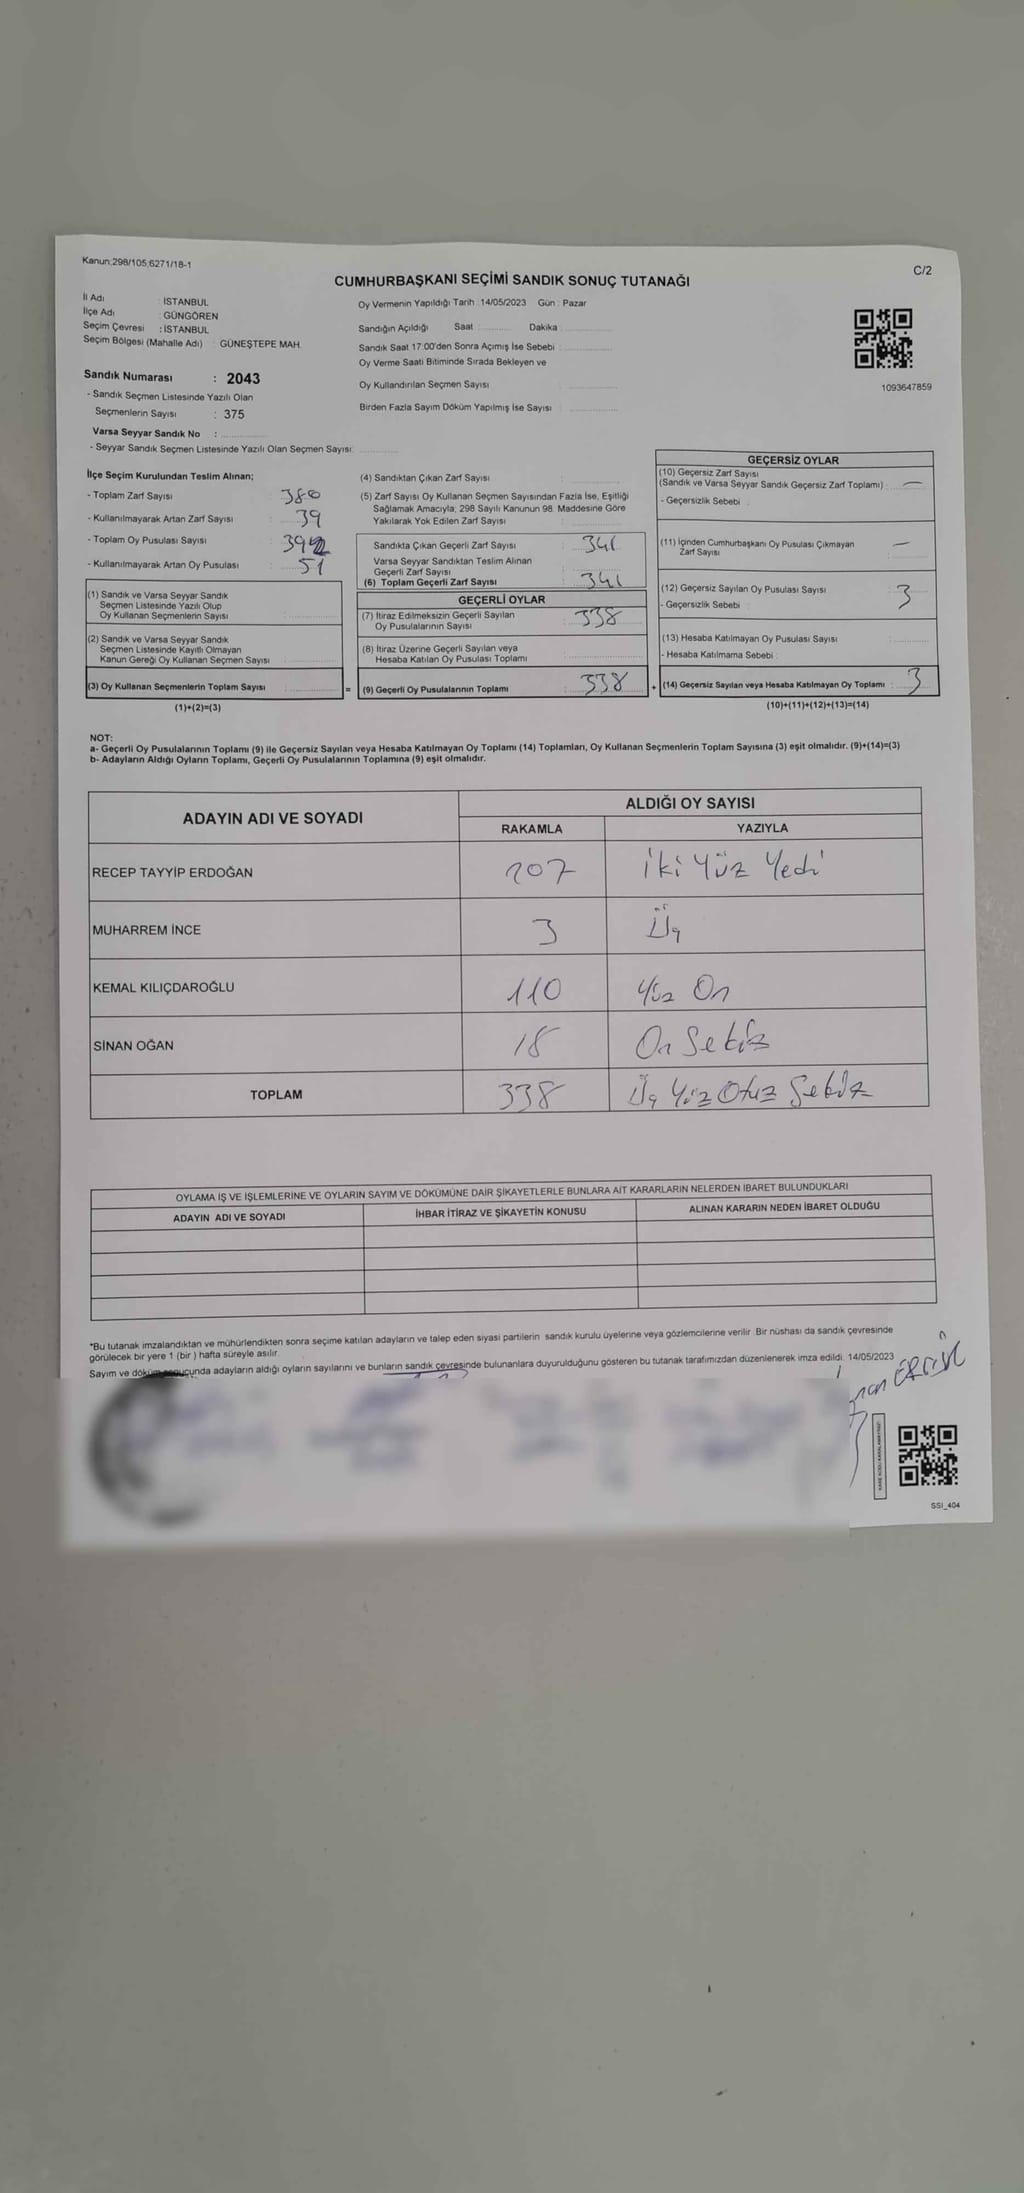 Kanun;298/105;6271/18-1
C/2
CUMHURBAŞKANI SEÇİMİ SANDIK SONUÇ TUTANAĞI
İl Adı : İSTANBUL
İlçe Adı : GÜNGÖREN
Seçim Çevresi : İSTANBUL
Seçim Bölgesi (Mahalle Adı) : GÜNEŞTEPE MAH.
Sandık Numarası : 2043
- Sandık Seçmen Listesinde Yazılı Olan
Seçmenlerin Sayısı : 375
Varsa Seyyar Sandık No :
- Seyyar Sandık Seçmen Listesinde Yazılı Olan Seçmen Sayısı:
Oy Vermenin Yapıldığı Tarih : 14/05/2023 Gün : Pazar
Sandığın Açıldığı Saat : Dakika :
Sandık Saat 17:00'den Sonra Açımış İse Sebebi :
Oy Verme Saati Bitiminde Sırada Bekleyen ve
Oy Kullandırılan Seçmen Sayısı :
Birden Fazla Sayım Döküm Yapılmış İse Sayısı :
1093647859
İlçe Seçim Kurulundan Teslim Alınan;
- Toplam Zarf Sayısı : 380
- Kullanılmayarak Artan Zarf Sayısı : 39
- Toplam Oy Pusulası Sayısı : 392
- Kullanılmayarak Artan Oy Pusulası : 51
(1) Sandık ve Varsa Seyyar Sandık
Seçmen Listesinde Yazılı Olup
Oy Kullanan Seçmenlerin Sayısı :
(2) Sandık ve Varsa Seyyar Sandık
Seçmen Listesinde Kayıtlı Olmayan
Kanun Gereği Oy Kullanan Seçmen Sayısı :
(3) Oy Kullanan Seçmenlerin Toplam Sayısı : =
(1)+(2)=(3)
(4) Sandıktan Çıkan Zarf Sayısı :
(5) Zarf Sayısı Oy Kullanan Seçmen Sayısından Fazla İse, Eşitliği
Sağlamak Amacıyla; 298 Sayılı Kanunun 98. Maddesine Göre
Yakılarak Yok Edilen Zarf Sayısı :
Sandıkta Çıkan Geçerli Zarf Sayısı : 341
Varsa Seyyar Sandıktan Teslim Alınan
Geçerli Zarf Sayısı :
(6) Toplam Geçerli Zarf Sayısı : 341
GEÇERLİ OYLAR
(7) İtiraz Edilmeksizin Geçerli Sayılan
Oy Pusulalarının Sayısı : 338
(8) İtiraz Üzerine Geçerli Sayılan veya
Hesaba Katılan Oy Pusulası Toplamı :
(9) Geçerli Oy Pusulalarının Toplamı : 338 +
GEÇERSİZ OYLAR
(10) Geçersiz Zarf Sayısı
(Sandık ve Varsa Seyyar Sandık Geçersiz Zarf Toplamı) : —
- Geçersizlik Sebebi :
(11) İçinden Cumhurbaşkanı Oy Pusulası Çıkmayan
Zarf Sayısı : —
(12) Geçersiz Sayılan Oy Pusulası Sayısı : 3
- Geçersizlik Sebebi :
(13) Hesaba Katılmayan Oy Pusulası Sayısı :
- Hesaba Katılmama Sebebi :
(14) Geçersiz Sayılan veya Hesaba Katılmayan Oy Toplamı : 3
(10)+(11)+(12)+(13)=(14)
NOT:
a- Geçerli Oy Pusulalarının Toplamı (9) ile Geçersiz Sayılan veya Hesaba Katılmayan Oy Toplamı (14) Toplamları, Oy Kullanan Seçmenlerin Toplam Sayısına (3) eşit olmalıdır. (9)+(14)=(3)
b- Adayların Aldığı Oyların Toplamı, Geçerli Oy Pusulalarının Toplamına (9) eşit olmalıdır.
ADAYIN ADI VE SOYADI
ALDIĞI OY SAYISI
RAKAMLA YAZIYLA
RECEP TAYYİP ERDOĞAN 207 İki Yüz Yedi
MUHARREM İNCE 3 Üç
KEMAL KILIÇDAROĞLU 110 Yüz On
SİNAN OĞAN 18 On Sekiz
TOPLAM 338 Üç Yüz Otuz Sekiz
OYLAMA İŞ VE İŞLEMLERİNE VE OYLARIN SAYIM VE DÖKÜMÜNE DAİR ŞİKAYETLERLE BUNLARA AİT KARARLARIN NELERDEN İBARET BULUNDUKLARI
ADAYIN ADI VE SOYADI İHBAR İTİRAZ VE ŞİKAYETİN KONUSU ALINAN KARARIN NEDEN İBARET OLDUĞU
*Bu tutanak imzalandıktan ve mühürlendikten sonra seçime katılan adayların ve talep eden siyasi partilerin sandık kurulu üyelerine veya gözlemcilerine verilir. Bir nüshası da sandık çevresinde
görülecek bir yere 1 (bir ) hafta süreyle asılır.
Sayım ve döküm sonucunda adayların aldığı oyların sayılarını ve bunların sandık çevresinde bulunanlara duyurulduğunu gösteren bu tutanak tarafımızdan düzenlenerek imza edildi. 14/05/2023
SSI_404